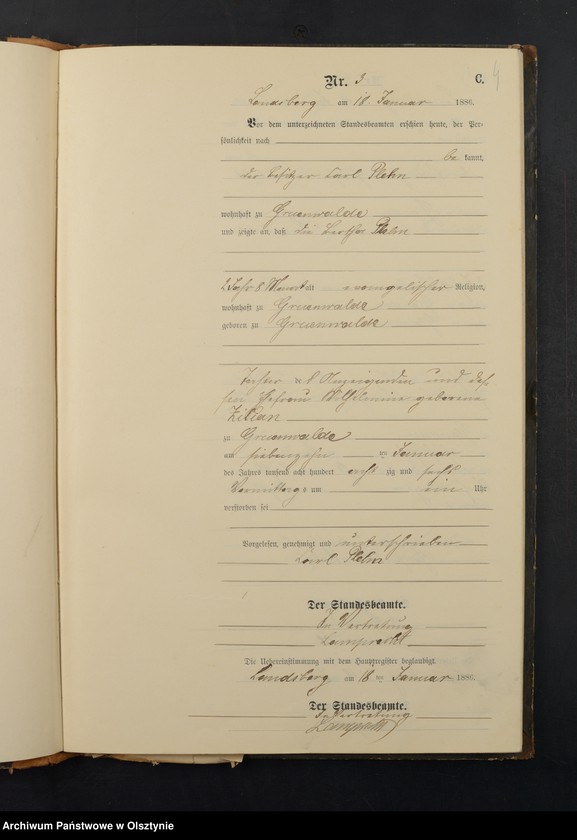 Nr. 3 C. 4
Landsberg am 18 Januar 1886.
Vor dem unterzeichneten Standesbeamten erschien heute, der Per-
sönlichkeit nach
be kannt,
der Besitzer Carl Plehn
wohnhaft zu Gruenwalde
und zeigte an, daß die Bertha Plehn
alt evangelischer Religion,
wohnhaft zu Gruenwalde
geboren zu Gruenwalde
Tochter Anzeigenden und des-
sen Ehefrau Wilhelmine geborene
Zilian
zu Gruenwalde
am siebenzehn ten Januar
des Jahres tausend acht hundert acht zig und sechs
Vormittags um ein Uhr
verstorben sei
Vorgelesen, genehmigt und unterschrieben
Carl Plehn
Der Standesbeamte.
In Vertretung
Lamprecht
Die Uebereinstimmung mit dem Hauptregister beglaubigt.
Landsberg am 18 ten Januar 1886.
Der Standesbeamte.
In Vertretung
Lamprecht
Archiwum Państwowe w Olsztynie